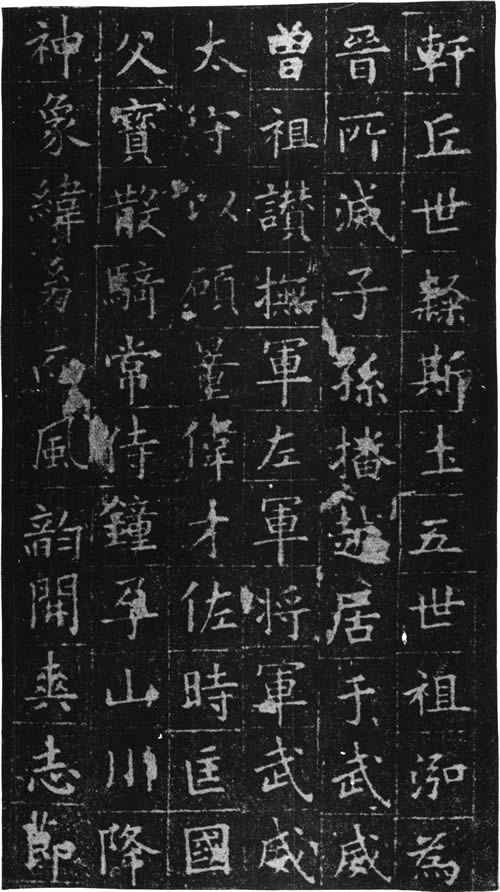 軒丘世斯土五世祖泓為
晉所滅子孫播越居于武威
曾祖讚撫軍左軍將軍武威
太守以碩量偉才佐時匡國
父寶散騎常侍鐘孕山川降
神象緯風韵開爽志節